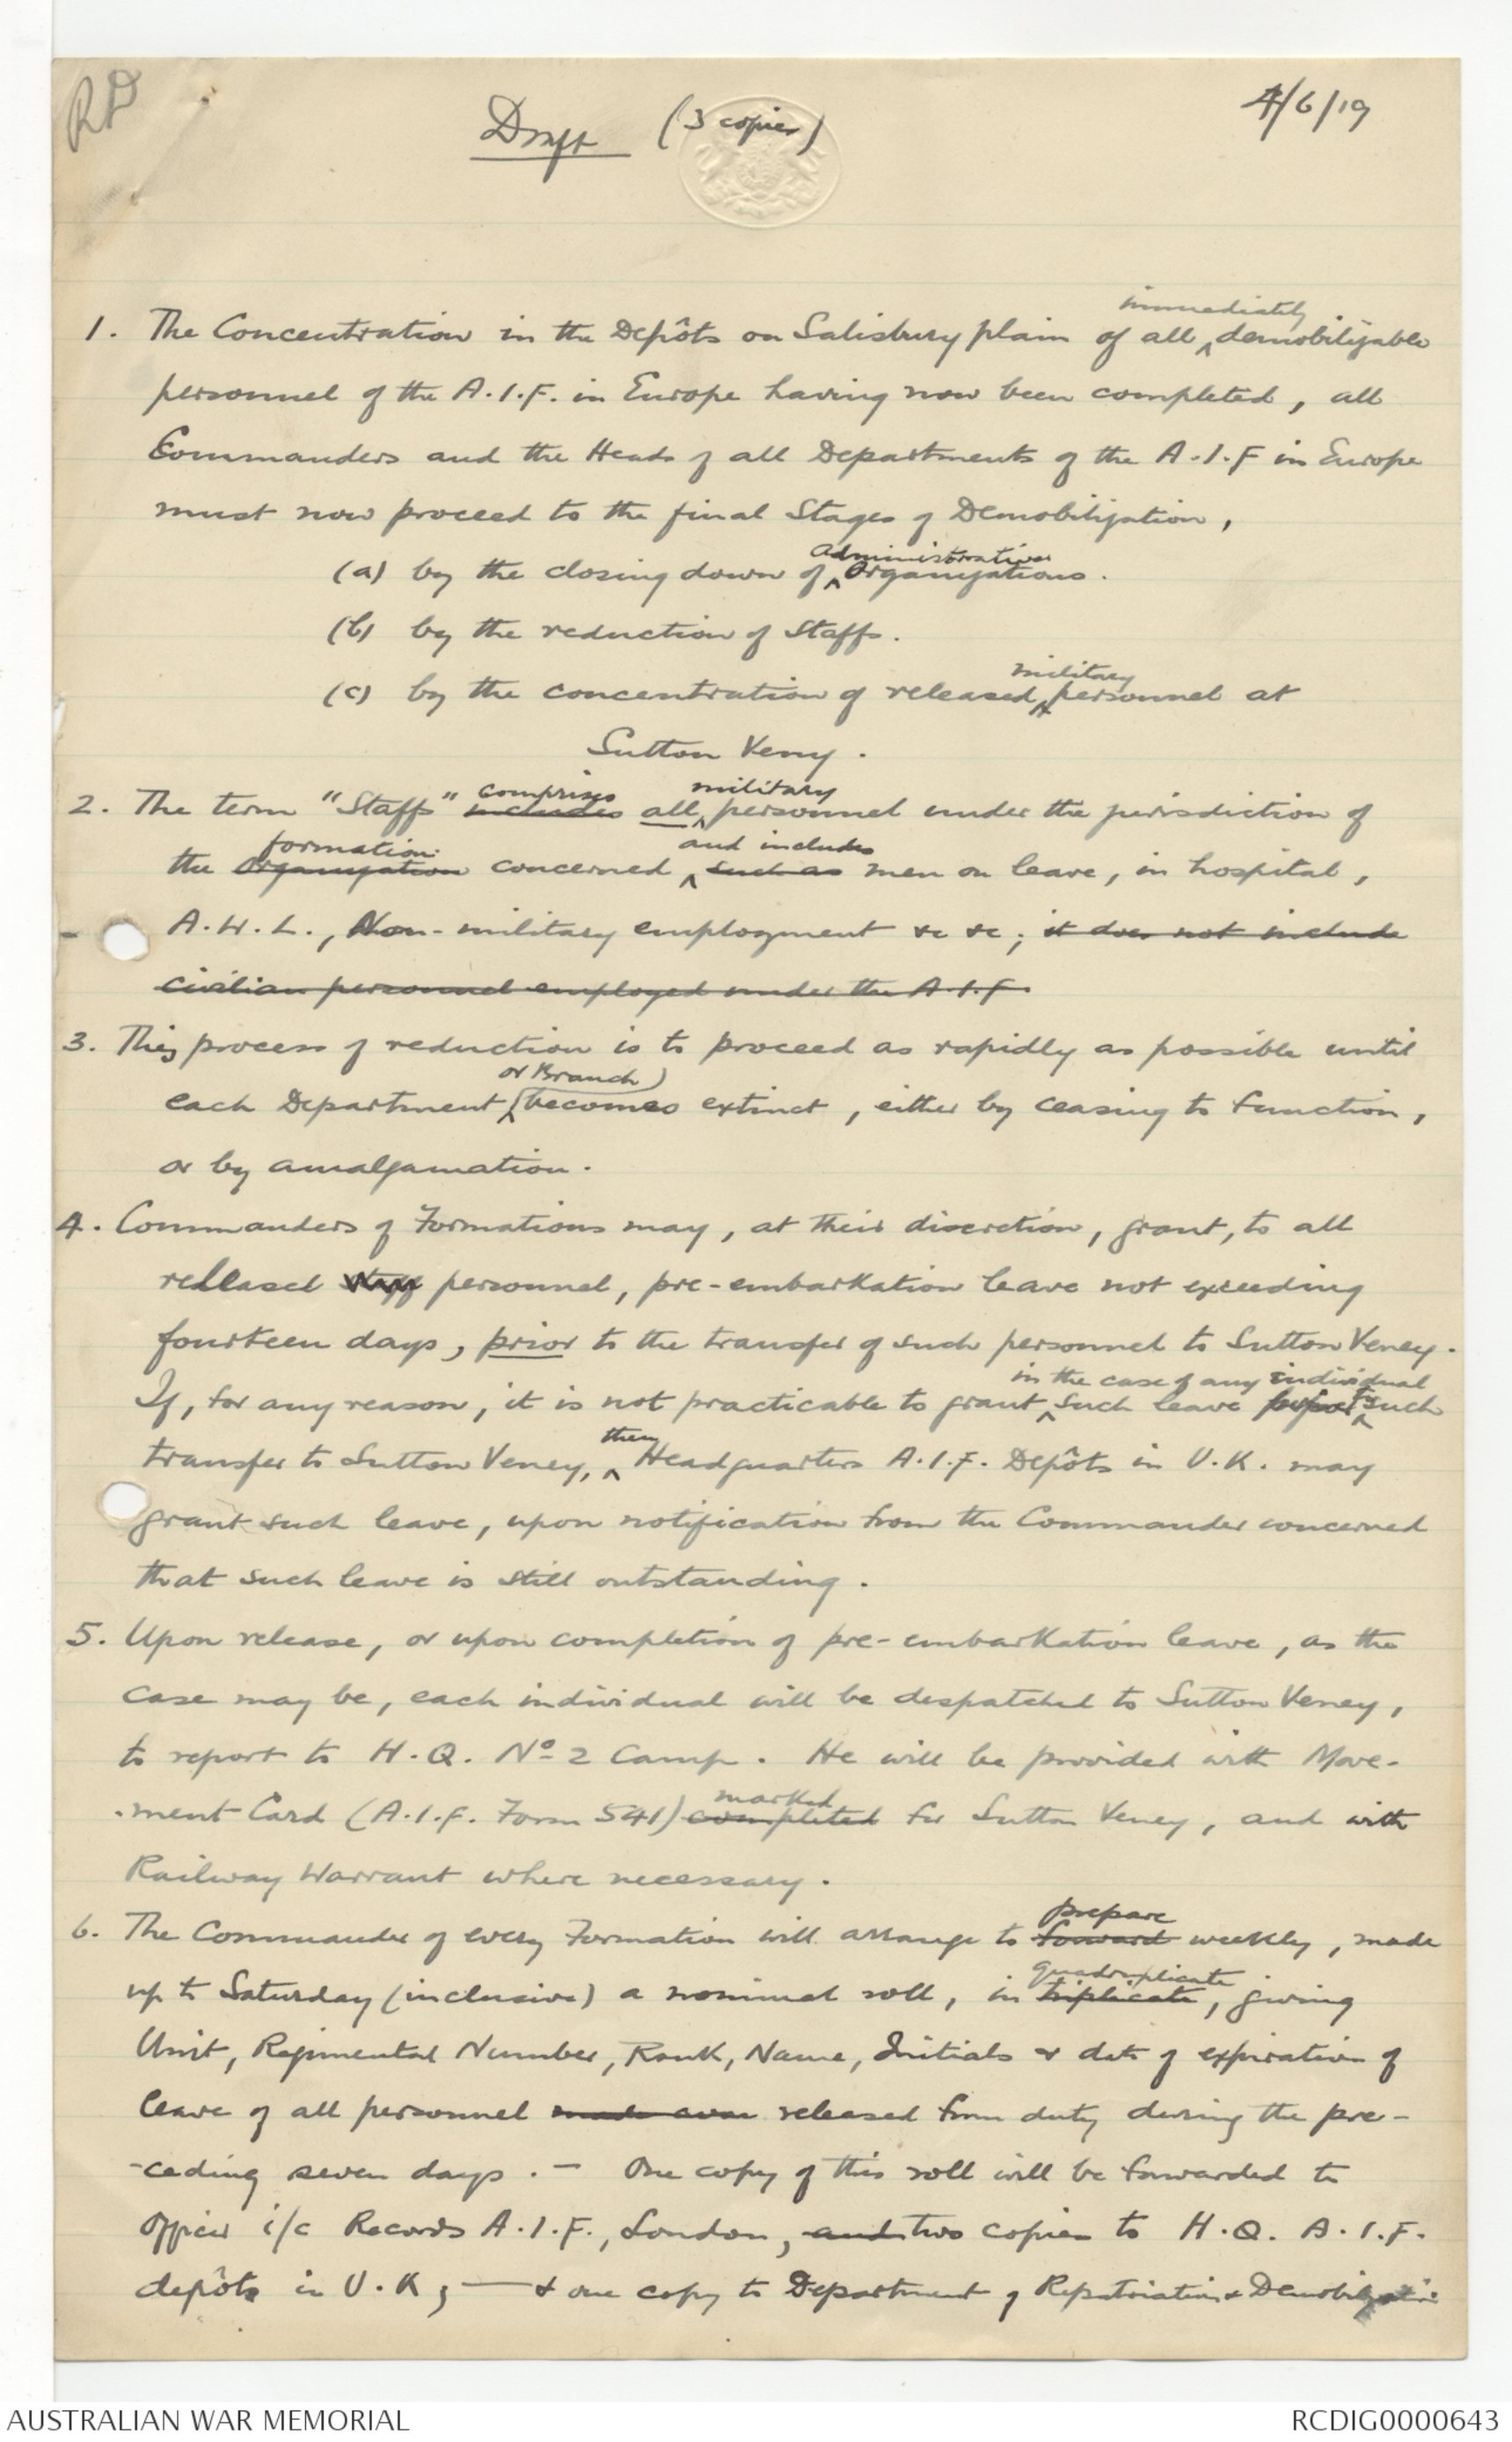 RD
Draft (3 copies) 4/6/19
1. The Concentration in the Depôts on Salisbury plain of all immediately demobilizable
personnel of the A.I.F. in Europe having now been completed, all
Commanders and the Heads of all Departments of the A.I.F in Europe
must now proceed to the final Stages of Demobilization,
(a) by the closing down of Administrative Organizations.
(b) by the reduction of Staffs.
(c) by the concentration of released military personnel at
Sutton Veny.
2. The term "Staffs" includes comprises all military personnel under the jurisdiction of
the Organization formation concerned, such as and includes men on leave, in hospital,
- A.W.L., Non-military employment &c &c; it does not include
civilian personnel employed under the A.I.F.
3. This process of reduction is to proceed as rapidly as possible until
each Department (or Branch) becomes extinct, either by ceasing to function,
or by amalgamation.
4. Commanders of Formations may, at their discretion, grant, to all
released staff personnel, pre-embarkation leave not exceeding
fourteen days, prior to the transfer of such personnel to Sutton Veney.
If, for any reason, it is not practicable to grant in the case of any individual such leave before such
transfer to Sutton Veney, then Headquarters A.I.F. Depôts in U.K. may
grant such leave, upon notification from the Commander concerned
that such leave is still outstanding.
5. Upon release, or upon completion of pre-embarkation leave, as the
case may be, each individual will be despatched to Sutton Veney,
to report to H.Q. No 2 Camp. He will be provided with Move-
-ment Card (A.I.F. Form 541) completed marked for Sutton Veney, and with
Railway Warrant where necessary.
6. The Commander of every Formation will arrange to forward prepare weekly, made
up to Saturday (inclusive) a nominal roll, in triplicate quadruplicate, giving
Unit, Regimental Number, Rank, Name, Initials & date of expiration of
leave of all personnel released from duty during the pre-
-ceding seven days. - One copy of this roll will be forwarded to
Officer i/c Records A.I.F., London, and two copies to H.Q. A.I.F.
depôts in U.K; — & one copy to Department of Repatriation & Demobilization
AUSTRALIAN WAR MEMORIAL RCDIG0000643